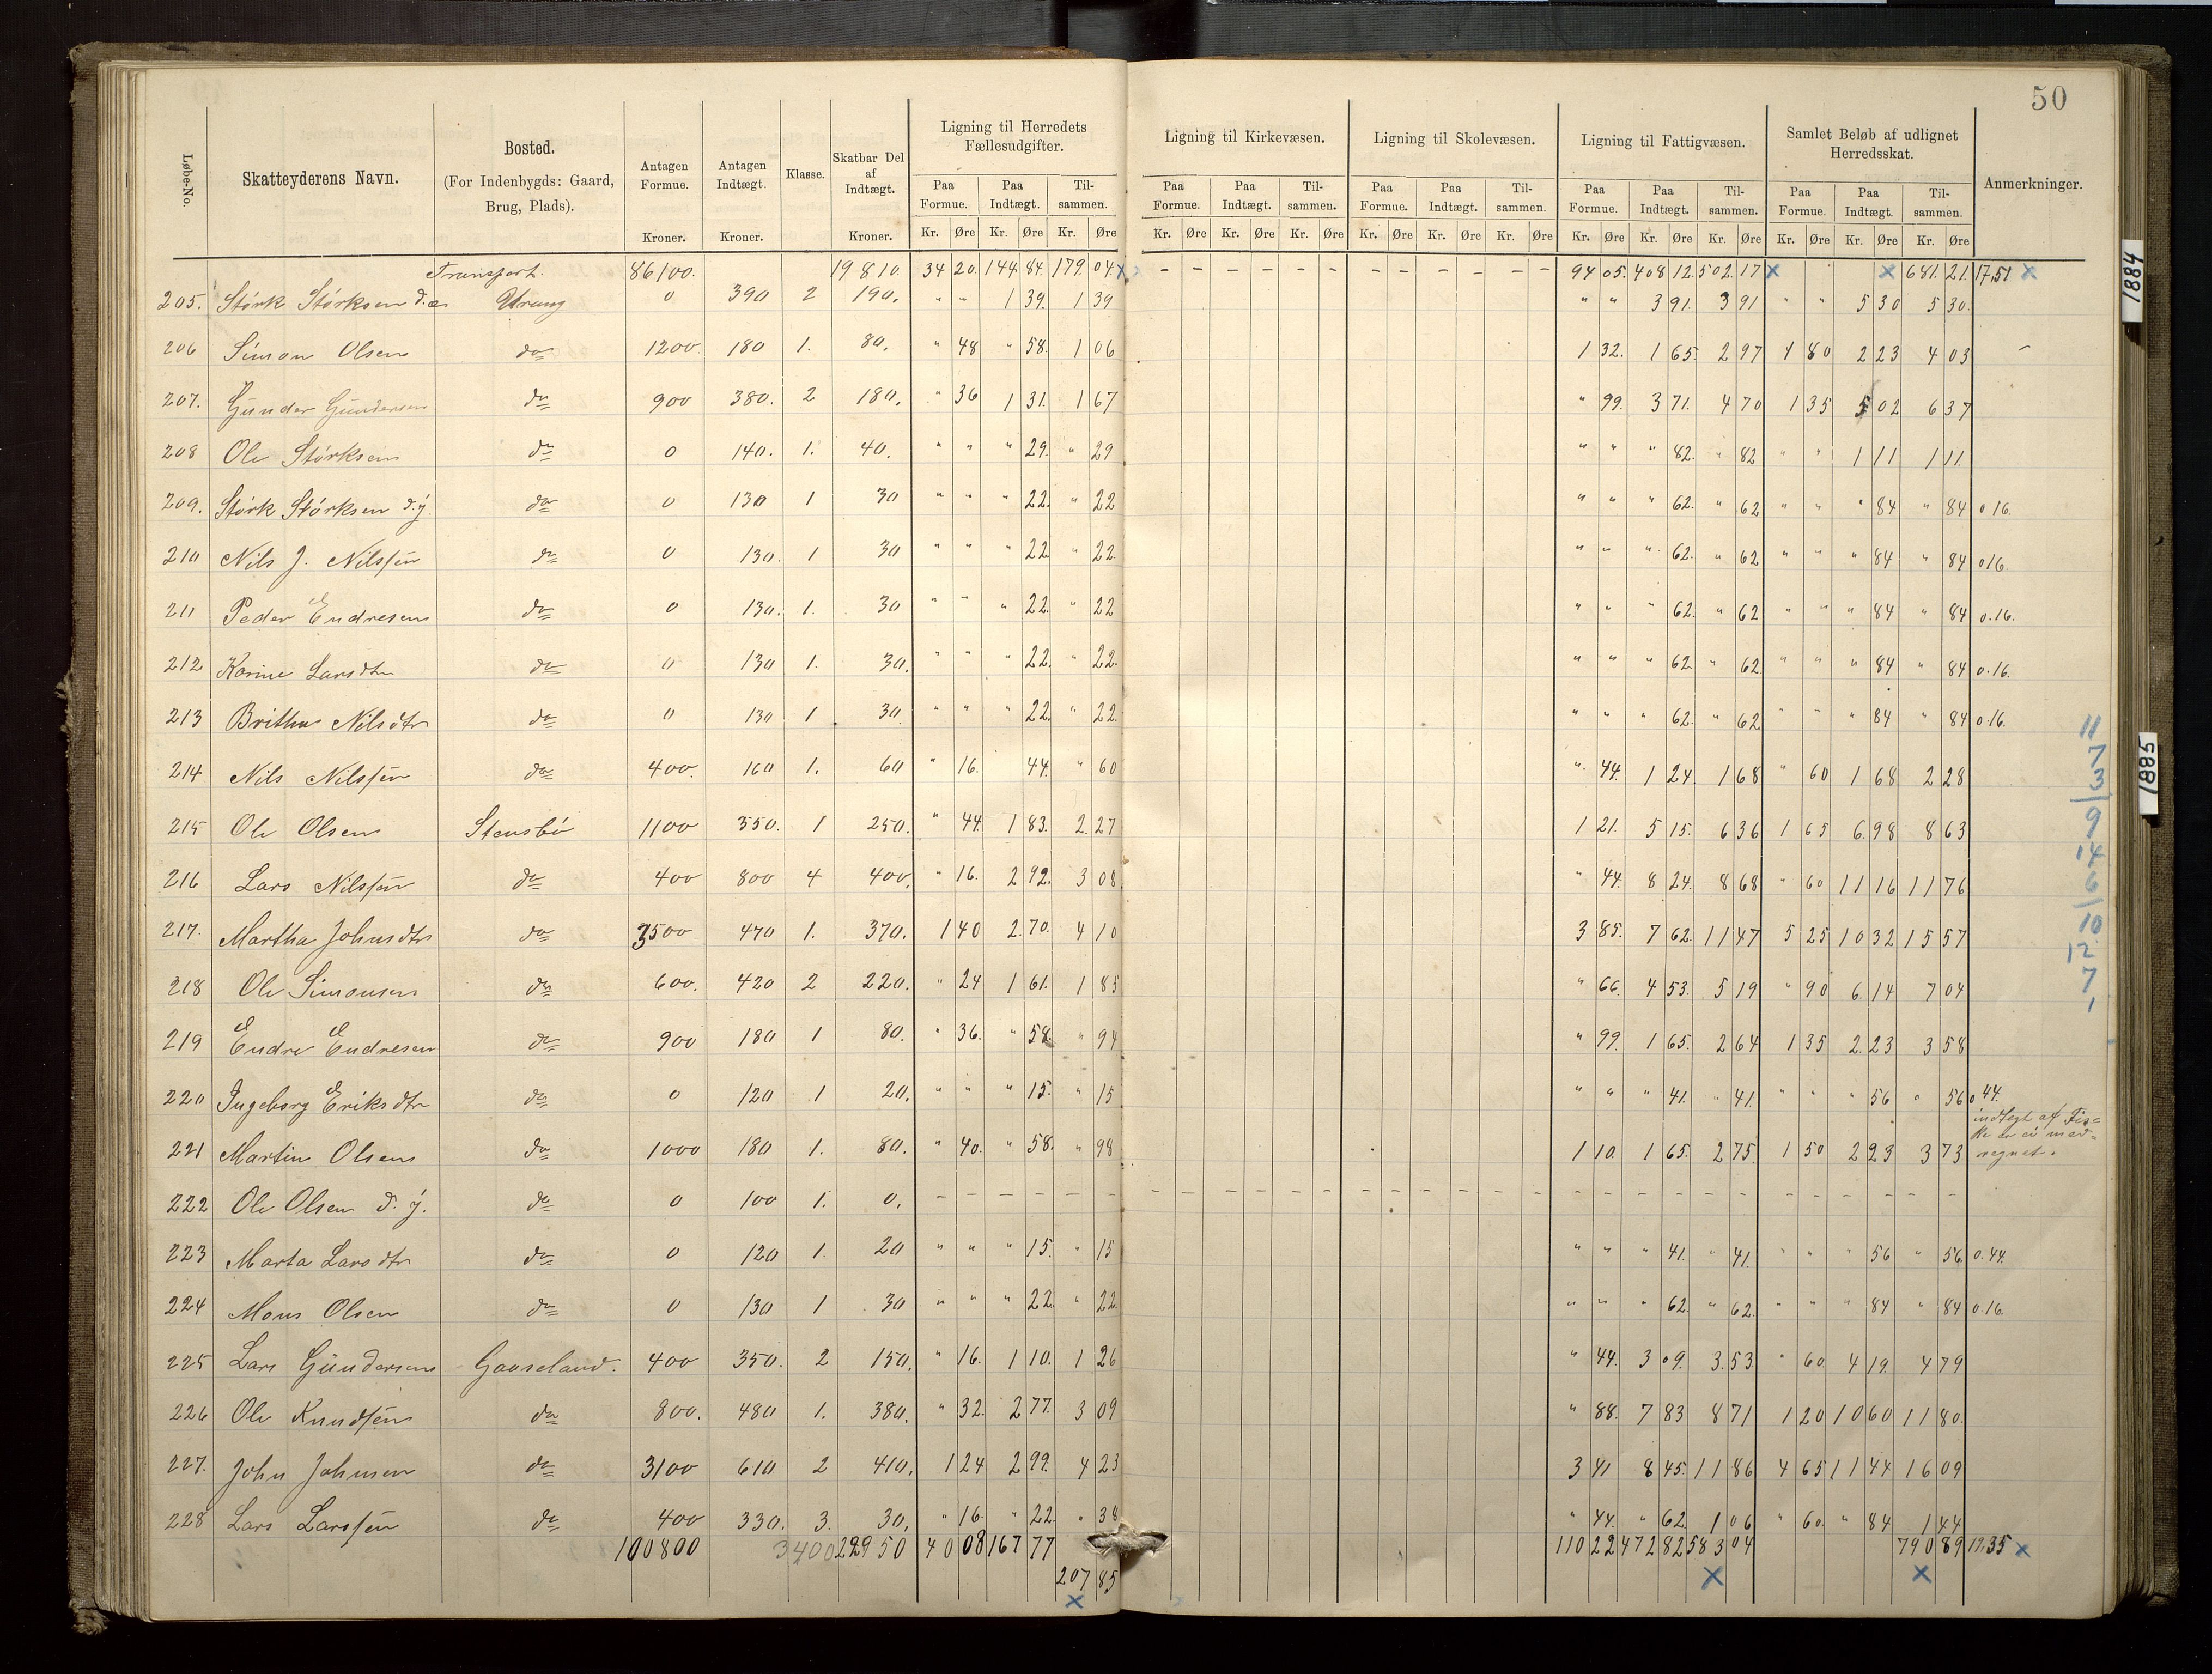 50
Løbe-No. Skatteyderens Navn. Bosted. (For Indenbygds: Gaard, Brug, Plads). Antagen Formue. Kroner. Antagen Indtægt. Kroner. Klasse. Skatbar Del af Indtægt. Kroner. Ligning til Herredets Fællesudgifter. Ligning til Kirkevæsen. Ligning til Skolevæsen. Ligning til Fattigvæsen. Samlet Beløb af udlignet Herredsskat. Anmerkninger.
Paa Formue. Paa Indtægt. Tilsammen. Paa Formue. Paa Indtægt. Tilsammen. Paa Formue. Paa Indtægt. Tilsammen. Paa Formue. Paa Indtægt. Tilsammen. Paa Formue. Paa Indtægt. Tilsammen.
Kr. Øre Kr. Øre Kr. Øre Kr. Øre Kr. Øre Kr. Øre Kr. Øre Kr. Øre Kr. Øre Kr. Øre Kr. Øre Kr. Øre Kr. Øre Kr. Øre Kr. Øre
Transport. 86100. 19810. 34 20. 144 84. 179. 04 x - - - - - - - - - - - - 94 05. 408 12. 502. 17 x x 681. 21. 17,51 x
205. Størk Størksen d.æ. Urang 0 390 2 190. " " 1 39. 1 39 " " 3 91. 3 91 " " 5 30 5 30.
206 Simon Olsen do 1200. 180 1. 80. " 48 " 58. 1 06 1 32. 1 65. 2 97 1 80 2 23 4 03 -
207. Gunder Gundersen do 900 380. 2 180. " 36 1 31. 1 67 " 99. 3 71. 4 70 1 35 5 02 6 37
208 Ole Størksen do 0 140. 1. 40. " " " 29. " 29 " " " 82. " 82 " " 1 11 1 11.
209. Størk Størksen d.y. do 0 130 1 30 " " " 22. " 22 " " " 62. " 62 " " " 84 " 84 0 16.
210 Nils J. Nilssen do 0 130. 1 30 " " " 22 " 22. " " " 62. " 62 " " " 84 " 84 0 16.
211 Peder Endresen do 0 130. 1. 30 " " " 22. " 22 " " " 62. " 62 " " " 84 " 84 0.16.
212 Karine Larsdtr do 0 130 1. 30. " " " 22. " 22. " " " 62. " 62 " " " 84 " 84 0.16.
213 Britha Nilsdtr do 0 130 1 30. " " " 22. " 22. " " " 62. " 62 " " " 84 " 84 0.16.
214 Nils Nilssen do 400. 160 1. 60 " 16. 44. " 60 " 44. 1 24. 1 68 " 60 1 68 2 28
215 Ole Olsen Stensbø 1100 350. 1 250. " 44. 1 83. 2. 27 1 21. 5 15. 6 36 1 65 6. 98 8 63
216 Lars Nilssen do 400 800 4 400. " 16. 2 92. 3 08. " 44. 8 24. 8 68 " 60 11 16 11 76
217. Martha Johnsdtr do 3500 470 1. 370. 1 40 2. 70. 4 10 3 85. 7 62. 11 47 5 25 10 32 15 57
218 Ole Simonsen do 600. 420 2 220. " 24 1 61. 1 85 " 66. 4 53. 5 19 " 90 6. 14 7 04
219 Endre Endresen do 900 180 1 80. " 36. " 58. " 94 " 99. 1 65. 2 64 1 35 2. 23 3 58
220 Ingeborg Eriksdtr do 0 120 1 20. " " " 15. " 15 " " " 41. " 41. " " " 56 " 56 0 44.
221 Martin Olsen do 1000 180 1. 80. " 40. " 58. " 98 1 10. 1 65. 2 75. 1 50 2 23 3 73 indtegt af Fiske er ei medregnet.
222 Ole Olsen d. y. do 0 100 1. 0. - - - - - - - - - - - - - - - - - - - - - - - - - - - - - -
223 Marta Larsdtr do 0 120 1. 20 " " " 15. " 15 " " " 41. " 41. " " " 56 " 56. 0.44.
224 Mons Olsen do 0 130 1 30 " " " 22. " 22 " " " 62. " 62. " " " 84 " 84 0.16.
225 Lars Gundersen Gaaseland. 400 350. 2 150. " 16. 1 10. 1 26 " 44. 3 09. 3. 53 " 60. 4 19. 4 79
226 Ole Knudsen do 800. 480 1. 380. " 32. 2 77. 3 09 " 88. 7 83 8 71 1 20 10 60 11 80.
227. John Johnsen do 3100 610 2 410. 1 24 2 99. 4 23 3 41 8 45. 11 86 4 65 11 44 16 09
228 Lars Larssen do 400 330. 3. 30. " 16. " 22. " 38 " 44. " 62. 1 06 " 60. " 84 1 44
100800 3400 22950 40 08 167 77 110 22 472 82 583 04 790 89 17.35 x
207 85 x x
x
11
7
3
9
14
6
10
12
7
1
1884
1885